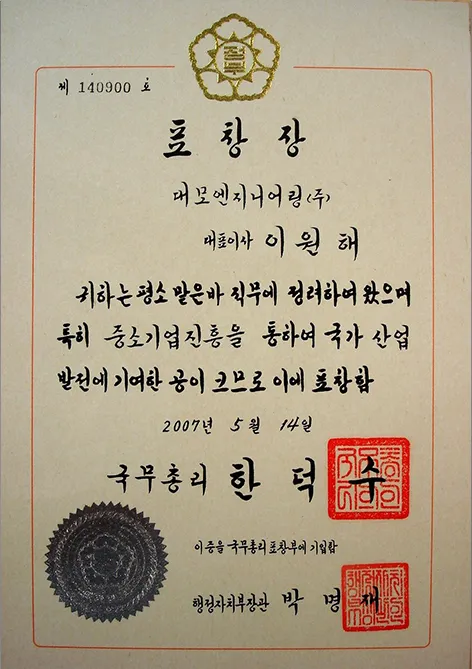 제 140900 호
표창장
대모엔지니어링(주)
대표이사 이원해
귀하는 평소 맡은바 직무에 정려하여 왔으며
특히 중소기업진흥을 통하여 국가 산업
발전에 기여한 공이 크므로 이에 표창함
2007년 5월 14일
국무총리 한덕수
이 증을 국무총리 표창부에 기입함
행정자치부장관 박명재